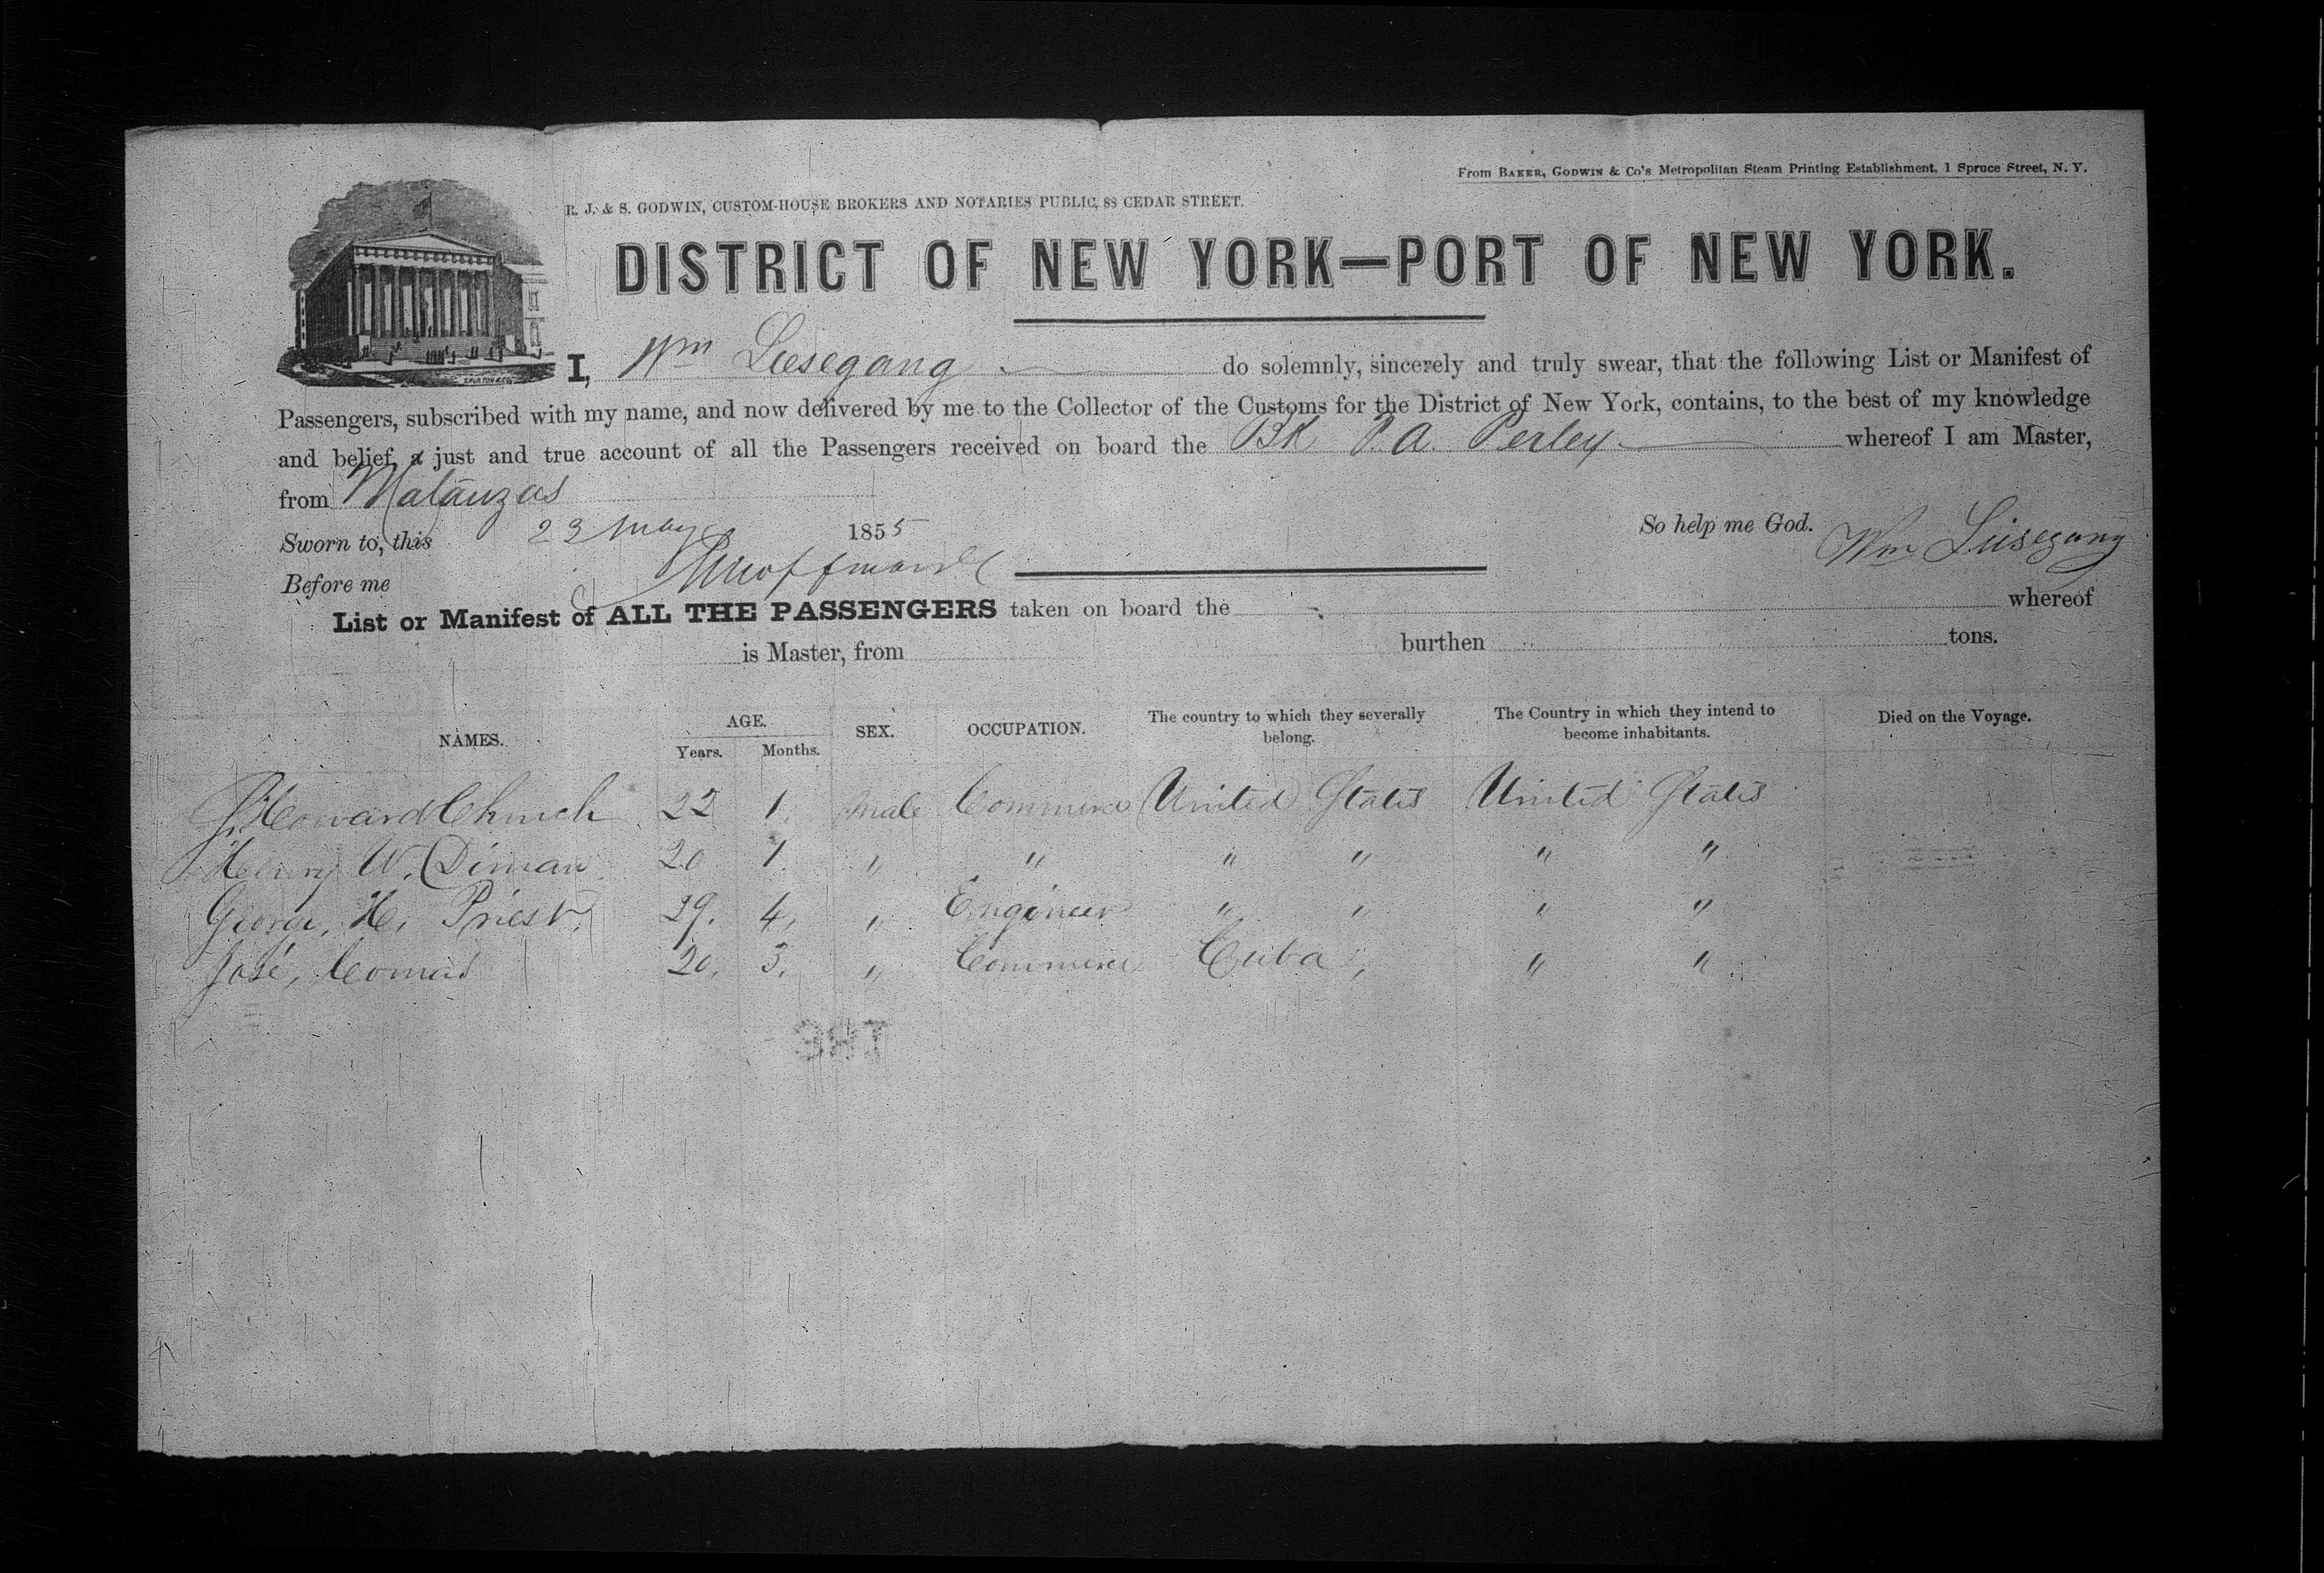 From BAKER, GODWIN & Co's Metropolitan Steam Printing Establishment, 1 Spruce Street, N. Y.
R. J. & S. GODWIN, CUSTOM-HOUSE BROKERS AND NOTARIES PUBLIC, 88 CEDAR STREET.
DISTRICT OF NEW YORK—PORT OF NEW YORK.
I, Wm Liesegang do solemnly, sincerely and truly swear, that the following List or Manifest of
Passengers, subscribed with my name, and now delivered by me to the Collector of the Customs for the District of New York, contains, to the best of my knowledge
and belief, a just and true account of all the Passengers received on board the Bk P. A. Perley whereof I am Master,
from Matanzas
Sworn to, this 23 May 1855 So help me God. Wm Liesegang
Before me
List or Manifest of ALL THE PASSENGERS taken on board the whereof
is Master, from burthen tons.
NAMES. AGE. Years. Months. SEX. OCCUPATION. The country to which they severally belong. The Country in which they intend to become inhabitants. Died on the Voyage.
Howard Church 22 1. Male Commerce United States United States
Henry W. Diman 20 1 " " " " " "
George, H. Priest, 29. 4, " Engineer " " " "
José, Comas 20, 3, " Commerce Cuba, " "